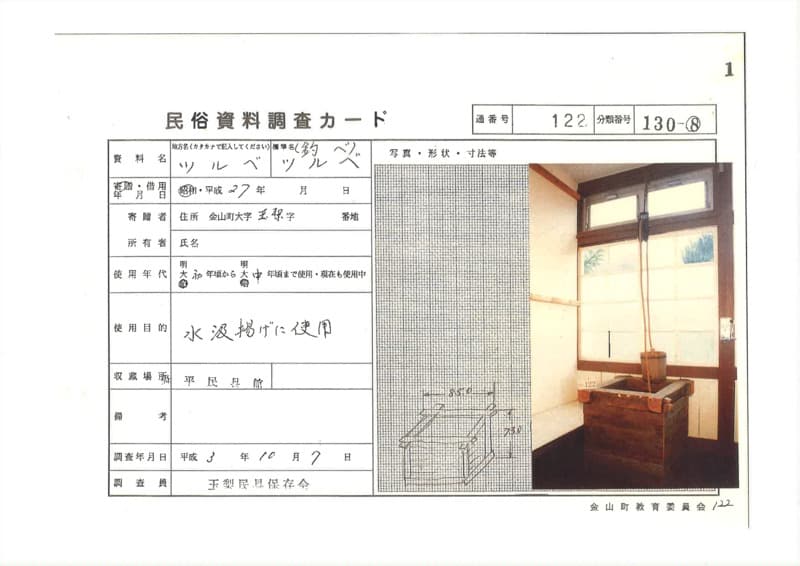 1
民俗資料調査カード
通番号 122 分類番号 130-⑧
資料名 地方名(カタカナで記入してください) ツルベ 標準名(釣べ) ツルベ
写真・形状・寸法等
寄贈・借用年月日 昭和・平成 27年 月 日
寄贈者 住所 金山町大字 玉梨 字 番地
所有者 氏名
使用年代 明大昭 初 年頃から 明大昭 中 年頃まで使用・現在も使用中
使用目的 水汲揚げに使用
収蔵場所 平民具館
備考
調査年月日 平成 3 年 10 月 7 日
調査員 玉梨民具保存会
850
730
122
金山町教育委員会 122